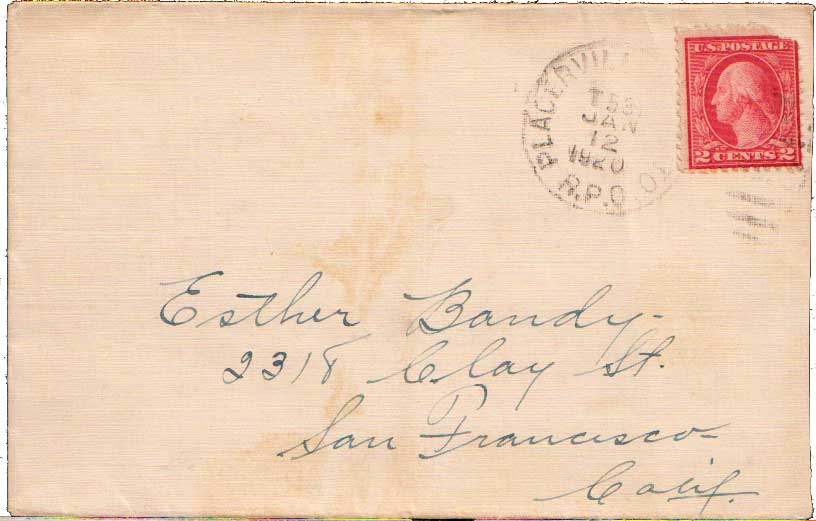 U.S. POSTAGE
2 CENTS 2
PLACERVIL
T53
JAN
12
1920
R.P.O.
Esther Bandy-
2318 Clay St.
San Francisco-
Calif.